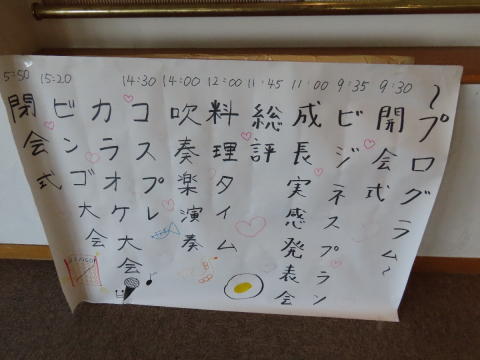 ~プログラム~
9:30 開会式
9:35 ビジネスプラン
11:00 成長実感発表会
11:45 総評
12:00 料理タイム
14:00 吹奏楽演奏
14:30 コスプレ
カラオケ大会
15:20 ビンゴ大会
15:50 閉会式